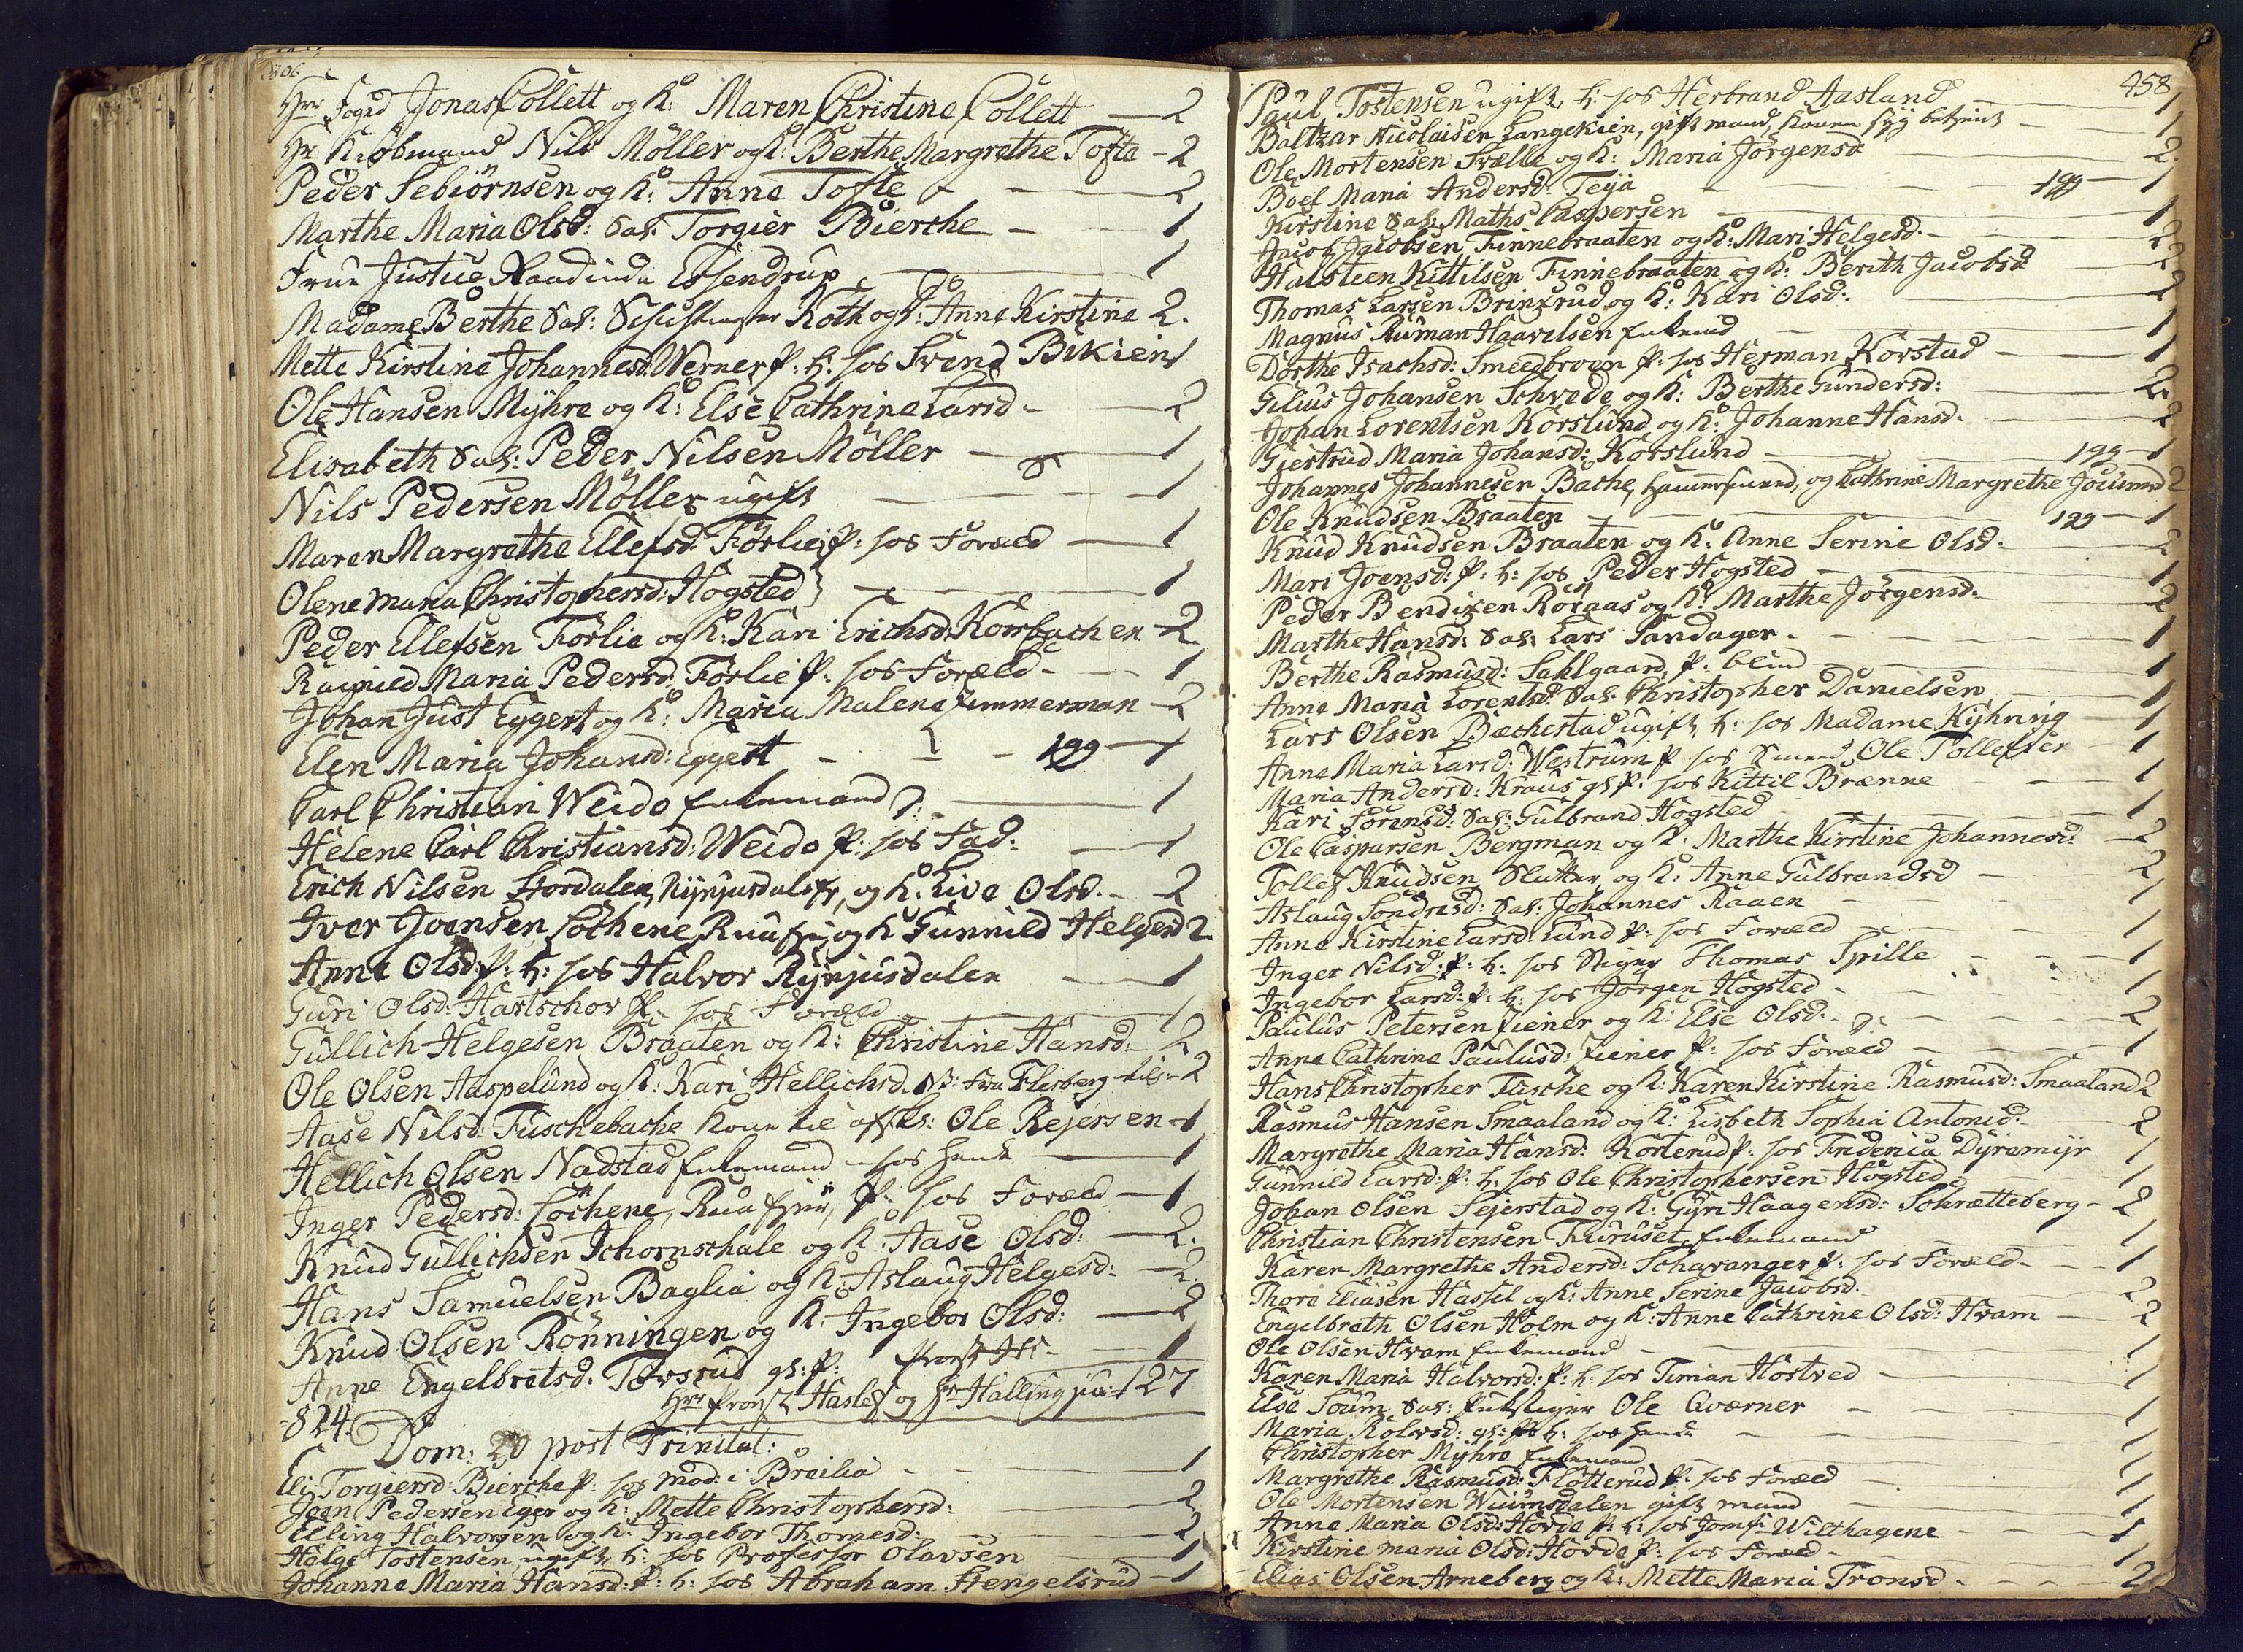 1806
Hr Foged Jonas Collett og K: Maren Christine Collett — 2
Hr Kiøbmand Nils Møller og K: Berthe Margrethe Tofte - 2
Peder Sebiørnsen og K: Anne Tofte - — 2
Marthe Maria Olsd: Sal: Torgier Bierche — - 1
Frue Justice Raadinde Essendrup — 1
Madame Berthe Sal: Roth og K: Anne Kirstine 2.
Mette Kirstine Johannesd: Werner P: h: hos Svend Bikien 1
Ole Hansen Mÿhre og K: Else Cathrine Larsd - — 2
Elisabeth Sal: Peder Nilsen Møller — 1
Nils Pedersen Møller ugift — 1
Maren Margrethe Ellefsd: Førlie P: hos Foræld — 1
Olene Maria Christophersd: Høgsted — 1
Peder Ellefsen Førlie og K: Kari Erichsd: Korsbachen - 2
Ragnild Maria Pedersd: Førlie P: hos Foræld - — 1
Johan Just Eggert og K: Maria Malene Zimmerman - 2
Elen Maria Johansd: Eggert - — 1gg — 1
Carl Christian Weido Enkemand — 1
Helene Carl Christiansd: Weido P: hos Fad: — 1
Erich Nilsen Stordalen, og K: Live Olsd. - 2
Iver Joensen Løchene, og K Gunnild Helgesd 2
Anne Olsd: P: h: hos Halvor Rÿnjusdalen — 1
Guri Olsd: Hartschov P: hos Foræld — 1
Gullich Helgesen Braaten og K: Christine Hansd: 2
Ole Olsen Haspelund og K: Kari Hellichsd. NB: fra Flesberg - 2
Aase Nilsd: Fuschebache Kone til Ole Rejersen - 1
Hellich Olsen Nadstad Enkemand - hos — 1
Inger Pedersd: Løchene, P: hos Foræld — 1
Knud Gullichsen Schornschale og K: Aase Olsd: — 2.
Hans Samuelsen Baglia og K: Aslaug Helgesd: — 2.
Knud Olsen Rønningen og K: Ingebor Olsd: — 2
Anne Engelbretsd: Tovsrud gl: P: — 1
Hr Provst Haslef og Hr Halling — 127
824.
Dom: 20 post Trinitat:
Eli Torgiersd: Bierche P: hos Mod: i Breilia — 1
Joen Pedersen Eger og K: Mette Christophersd: — 2
Elling Halvorsen og K: Ingebor Thomesd: — 2
Helge Tostensen ugift, h: hos Professor Olavsen — 1
Johanne Maria Hansd: P: h: hos Abraham Stengelsrud - 1
458
Paul Tostensen ugift h: hos Herbrand Aasland — 1
Baltzar Nicolaisen Langekien, gift mand, Konen sÿg — 1
Ole Mortensen Svælle og K: Maria Jørgensd — 2.
Boel Maria Andersd: Teÿa — 1gg — 1
Kirstine Sal: Maths Caspersen — 1
Jacob Jacobsen Finnebraaten og K: Mari Helgesd. — 2
Halsteen Kittilsen Finnebraaten og K: Berith Jacobsd — 2
Thomas Larsen Brinkrud og K: Kari Olsd: — 2
Magnus Ruman Haavelsen Enkemd — 1
Dorthe Isachsd: Smeedbroen P: hos Herman Korstad — 1
Gilius Johansen Schvede og K: Berthe Gundersd: — 2.
Johan Lorentsen Korslund og K: Johanne Hansd. — 2
Giertrud Maria Johansd: Korslund — 1gg - 1
Johannes Johannesen Bache, og Cathrine Margrethe 2
Ole Knudsen Braaten — 1gg — 1
Knud Knudsen Braaten og K: Anne Serine Olsd. — 2
Mari Joensd: P: h: hos Peder Høgsted — 1
Peder Bendixen Røraas og K: Marthe Jørgensd. — 2
Marthe Hansd: Sal: Lars Sandager. — 1
Berthe Rasmusd: Sahlgaard P: blind — 1
Anne Maria Lorentsd: Sal: Christopher Danielsen — 1
Lars Olsen Bæchestad ugift h: hos Madame Kÿhnrig — 1
Anne Maria Larsd: Westrum P hos Ole Tollefsen — 1
Maria Andersd: Kraus gl P: hos Kittil Brænne — 1
Kari Sørensd: Sal: Gulbrand Høgsted — 1
Ole Caspersen Bergman og K: Marthe Kirstine Johannesd: — 2
Tollef Knudsen Slutter og K: Anne Gulbrandsd — 2
Aslaug Sondresd: Sal: Johannes Raaen — 1
Anne Kirstine Larsd: Lund P: hos Foræld — 1
Inger Nilsd: P: h: hos Stiger Thomas Spille — 1
Ingebor Larsd: P: h: hos Jørgen Høgsted - — 1
Paulus Petersen Ziener og K: Else Olsd. — 2
Anne Cathrine Paulusd: Ziener P: hos Foræld — 1
Hans Christopher Fusche og K: Karen Kirstine Rasmusd: Smaaland 2
Rasmus Hansen Smaaland og K: Lisbeth Sophia Antonid: — 2
Margrethe Maria Hansd: Korterud P: hos Friderica Dÿremÿr — 1
Gunnild Larsd: P: h: hos Ole Christophersen Høgsted — 1
Johan Olsen Sejerstad og K: Gÿri Haagensd: Schrætteberg - 2
Christian Christensen Furuset Enkemand — 1
Karen Margrethe Andersd: Schavanger P: hos Foræld — 1
Thore Eliasen Hassel og K: Anne Serine Jacobsd. — 2
Engelbreth Olsen Holm og K: Anne Cathrine Olsd: Hvam — 2
Ole Olsen Hvam Enkemand — 1
Karen Maria Halvorsd: P: h: hos Timan Hostved — 1
Else Soum Sal: Ole Qværner — 1
Maria Rolvsd: gl: P: h: hos — 1
Christopher Mÿhre Enkemand — 1
Margrethe Rasmusd: Flotterud P: hos Foræld — 1
Ole Mortensen Wuimsdalen gift mand — 1
Anne Maria Olsd: Hovde P: h: hos Jomf: Wilthagene — 1
Kirstine Maria Olsd: Hovde P: hos Foræld - — 1
Elias Olsen Arneberg og K: Mette Maria Tronsd. — 2